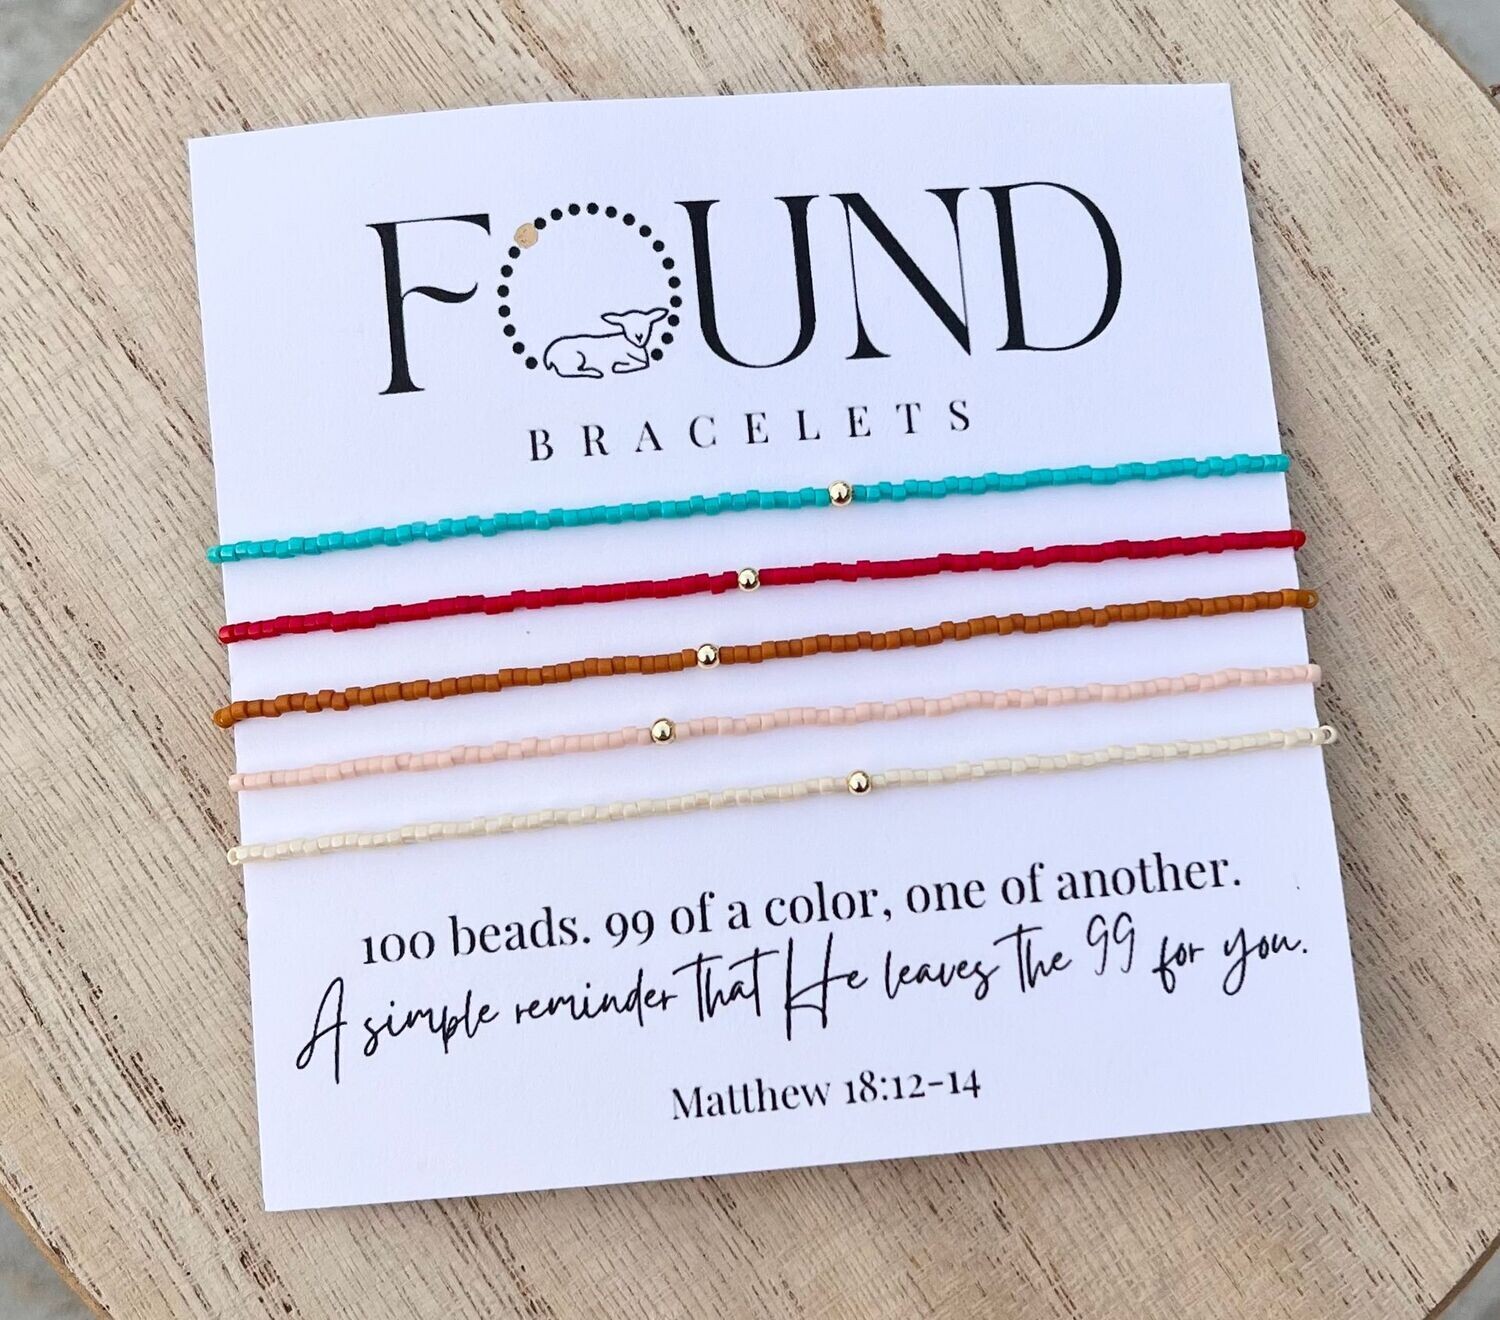 FOUND
BRACELETS
100 beads. 99 of a color, one of another.
A simple reminder that He leaves the 99 for you.
Matthew 18:12-14